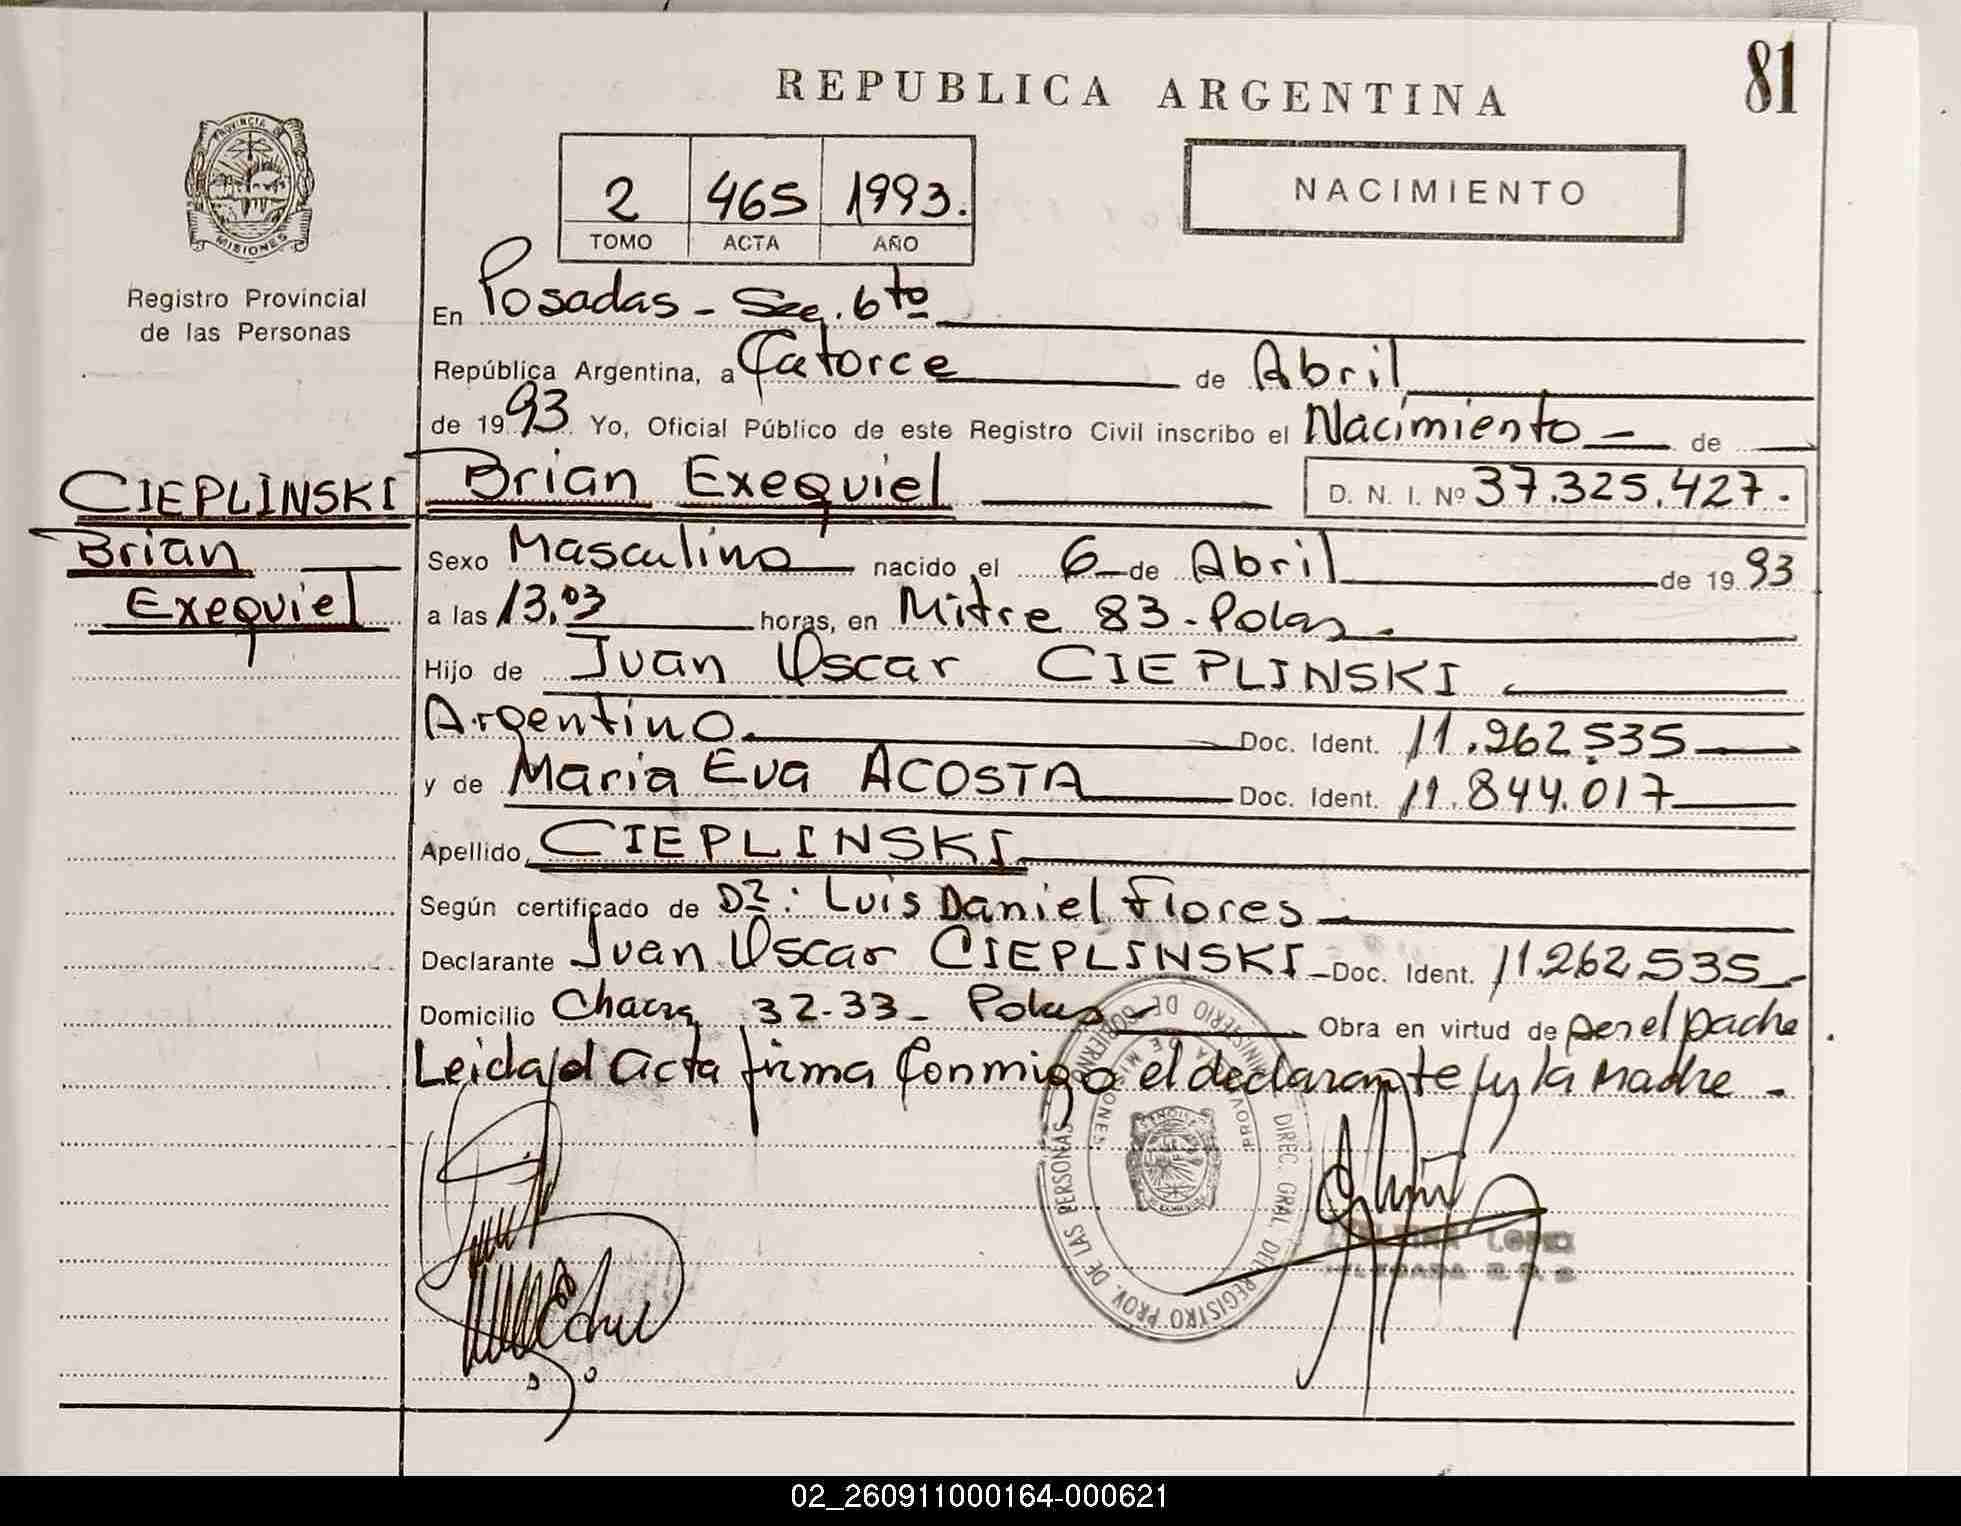 81
REPUBLICA ARGENTINA
NACIMIENTO
2 465 1993.
TOMO ACTA AÑO
PROVINCIA DE
MISIONES
Registro Provincial
de las Personas
En Posadas - Sec. 6to
República Argentina, a Catorce de Abril
de 1993 Yo, Oficial Público de este Registro Civil inscribo el Nacimiento - de
CIEPLINSKI
Brian
Exequiel
Brian Exequiel D. N. I. Nº 37.325.427.
Sexo Masculino nacido el 6 de Abril de 1993
a las 13,03 horas, en Mitre 83 - Pdas.
Hijo de Juan Oscar CIEPLINSKI
Argentino. Doc. Ident. 11.262.535
y de Maria Eva ACOSTA Doc. Ident. 11.844.017
Apellido CIEPLINSKI
Según certificado de Dr: Luis Daniel Flores
Declarante Juan Oscar CIEPLINSKI Doc. Ident. 11.262.535
Domicilio Chacra 32-33 - Pdas Obra en virtud de ser el padre.
Leida el acta firma conmigo el declarante y la madre -
DIREC. GRAL. DEL REGISTRO PROV. DE LAS PERSONAS
MINISTERIO DE GOBIERNO
PROVINCIA DE MISIONES
LOPEZ
02_260911000164-000621